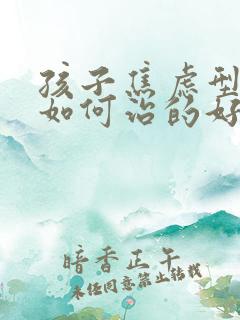 孩子焦虑型
如何治的好
暗香正午
未经同意禁止转载